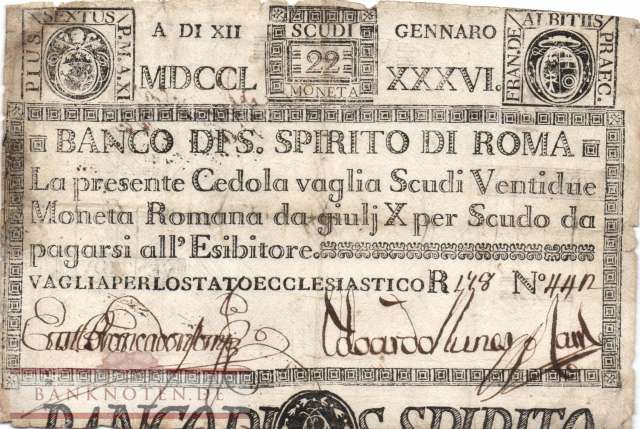 PIUS SEXTUS P.M.A.XI
A DI XII SCUDI GENNARO
22
MONETA
MDCCL XXXVI.
FRAN.DE ALBITIIS PRAEC.
BANCO DI S. SPIRITO DI ROMA
La presente Cedola vaglia Scudi Ventidue
Moneta Romana da giulj X per Scudo da
pagarsi all'Esibitore.
VAGLIA PER LO STATO ECCLESIASTICO R 178 No 44
Edoardo
BANKNOTEN.DE
BANCO DI S. SPIRITO